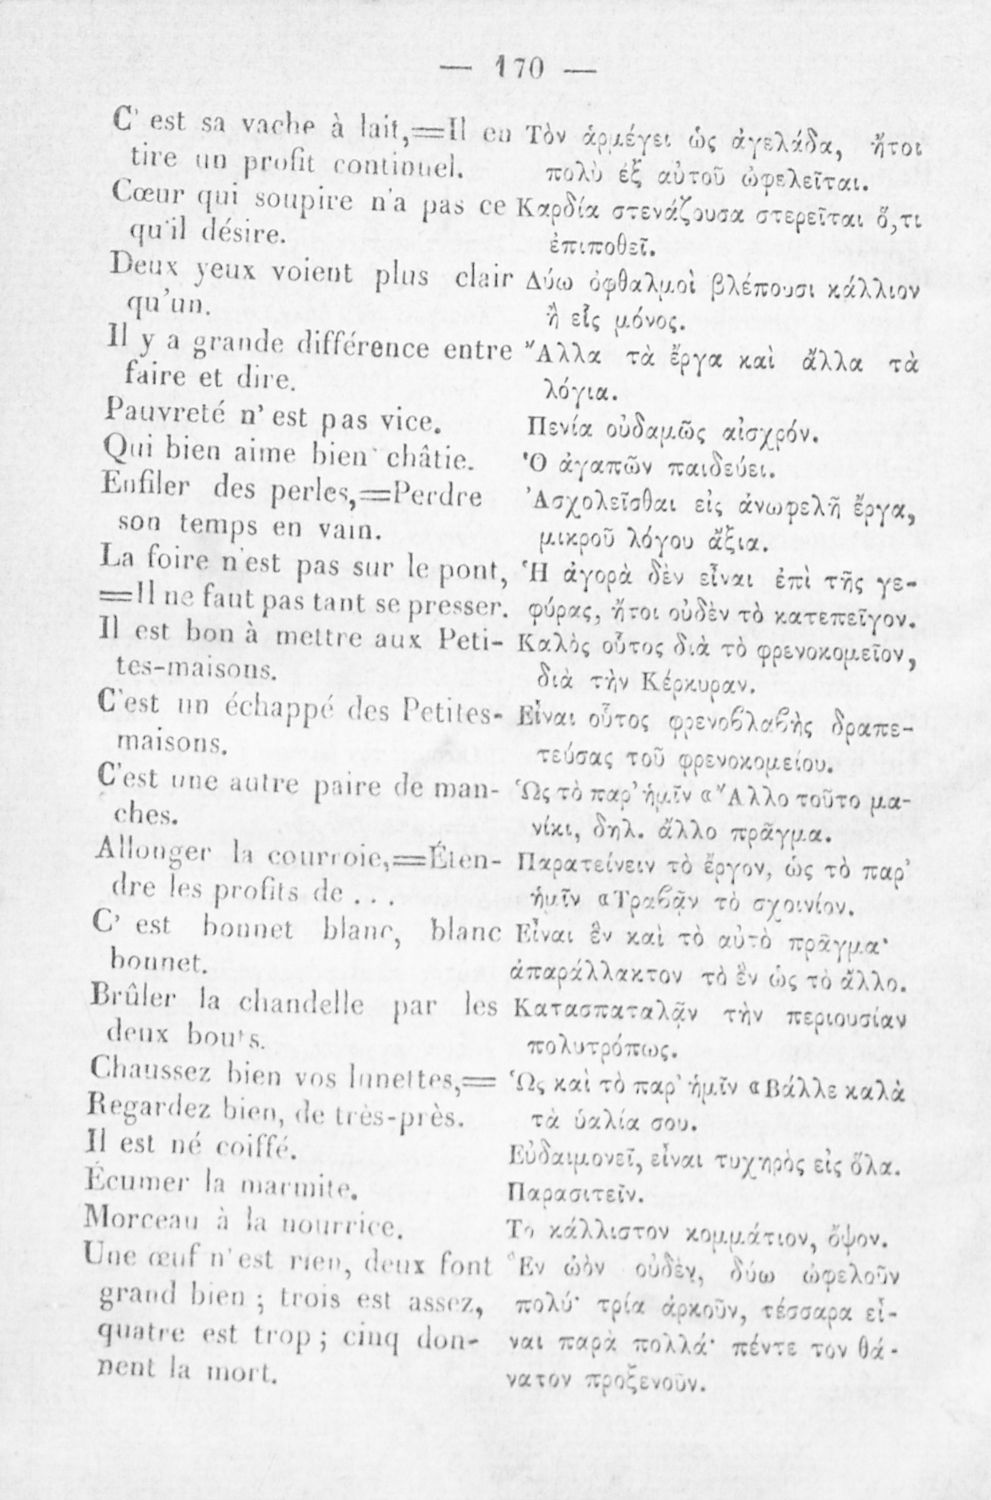 — 170 —
C' est sa vache à lait,=Il en
tire un profit continuel.
Cœur qui soupire n'a pas ce
qu'il désire.
Deux yeux voient plus clair
qu'un.
Il y a grande différence entre
faire et dire.
Pauvreté n' est pas vice.
Qui bien aime bien châtie.
Enfiler des perles,=Perdre
son temps en vain.
La foire n'est pas sur le pont,
=Il ne faut pas tant se presser.
Il est bon à mettre aux Peti-
tes-maisons.
C'est un échappé des Petites-
maisons.
C'est une autre paire de man-
ches.
Allonger la courroie,=Éten-
dre les profits de . . .
C' est bonnet blanc, blanc
bonnet.
Brûler la chandelle par les
deux bouts.
Chaussez bien vos lunettes,=
Regardez bien, de très-près.
Il est né coiffé.
Écumer la marmite.
Morceau à la nourrice.
Une œuf n'est rien, deux font
grand bien ; trois est assez,
quatre est trop ; cinq don-
nent la mort.
Τὸν ἁρμέγει ὡς ἀγελάδα, ἤτοι
πολὺ ἐξ αὐτοῦ ὠφελεῖται.
Καρδία στενάζουσα στερεῖται ὅ,τι
ἐπιποθεῖ.
Δύω ὀφθαλμοὶ βλέπουσι κάλλιον
ἢ εἷς μόνος.
Ἄλλα τὰ ἔργα καὶ ἄλλα τὰ
λόγια.
Πενία οὐδαμῶς αἰσχρόν.
Ὁ ἀγαπῶν παιδεύει.
Ἀσχολεῖσθαι εἰς ἀνωφελῆ ἔργα,
μικροῦ λόγου ἄξια.
Ἡ ἀγορὰ δὲν εἶναι ἐπὶ τῆς γε-
φύρας, ἤτοι οὐδὲν τὸ κατεπεῖγον.
Καλὸς οὗτος διὰ τὸ φρενοκομεῖον,
διὰ τὴν Κέρκυραν.
Εἶναι οὗτος φρενοβλαβὴς δραπε-
τεύσας τοῦ φρενοκομείου.
Ὡς τὸ παρ' ἡμῖν «Ἄλλο τοῦτο μα-
νίκι, δηλ. ἄλλο πρᾶγμα.
Παρατείνειν τὸ ἔργον, ὡς τὸ παρ'
ἡμῖν «Τραβᾷν τὸ σχοινίον.
Εἶναι ἓν καὶ τὸ αὐτὸ πρᾶγμα·
ἀπαράλλακτον τὸ ἓν ὡς τὸ ἄλλο.
Κατασπαταλᾷν τὴν περιουσίαν
πολυτρόπως.
Ὡς καὶ τὸ παρ' ἡμῖν «Βάλλε καλὰ
τὰ ὑαλία σου.
Εὐδαιμονεῖ, εἶναι τυχηρὸς εἰς ὅλα.
Παρασιτεῖν.
Τὸ κάλλιστον κομμάτιον, ὄψον.
Ἓν ὠὸν οὐδὲν, δύω ὠφελοῦν
πολύ· τρία ἀρκοῦν, τέσσαρα εἶ-
ναι παρὰ πολλά· πέντε τον θά-
νατον προξενοῦν.